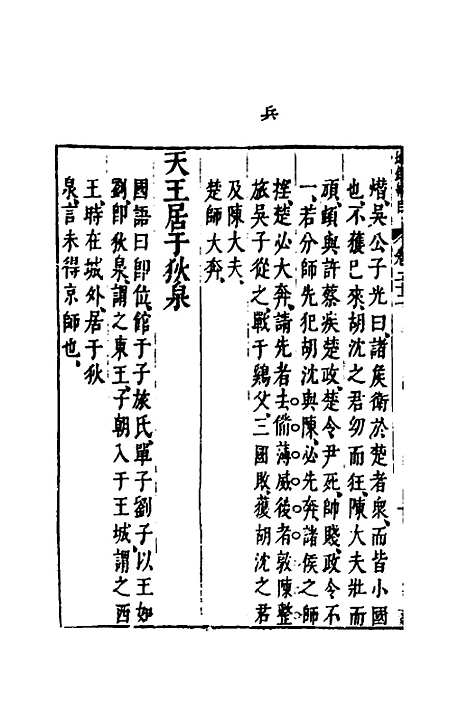 兵
熸吳公子光曰諸矦衛於楚者衆而皆小國
也不獲巳來胡沈之君幼而狂陳大夫壯而
頑頓與許蔡疾楚政楚令尹死帥賤政令不
一若分師先犯胡沈與陳必先奔諸侯之師
揺楚必大奔請先者去偹薄威後者敦陳整
旅吳子從之戰于鷄父三國敗獲胡沈之君
及陳大夫
楚師大奔
天王居于狄泉
國語曰即位館于子旅氏單子劉子以王如
劉即狄泉謂之東王子朝入于王城謂之西
王時在城外居于狄
泉言未得京師也